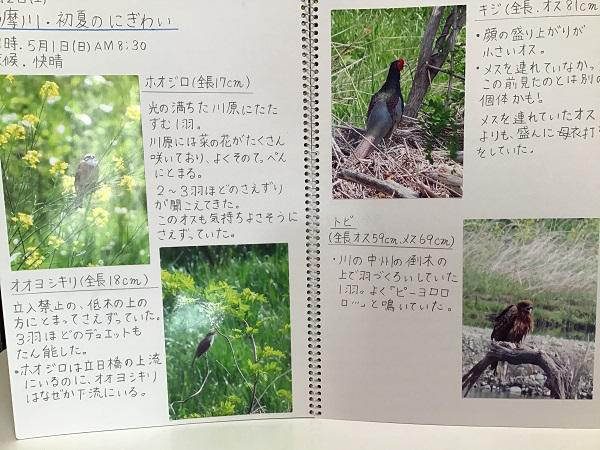 摩川・初夏のにぎわい
時.5月1日(日)AM8:30
候.快晴
ホオジロ(全長17cm)
光の満ちた川原にたた
ずむ1羽。
川原には菜の花がたくさん
咲いており、よくその「て。ぺん
にとまる。
2～3羽ほどのさえずり
が聞こえてきた。
このオスも気持ちよさそうに
さえずっていた。
オオヨシキリ(全長18cm)
立入禁止の、低木の上の
方にとまってさえずっていた。
3羽ほどのデュエットも
たん能した。
•ホオジロは立日橋の上流
にいるのに、オオヨシキリ
はなぜか下流にいる。
キジ(全長、オス81cm
•顔の盛り上がりが
小さいオス。
•メスを連れていなかっ
この前見たのとは別の
個体かも!
•メスを連れていたオス
よりも、盛んに母衣打
をしていた。
トビ
(全長オス59cm、メス69cm)
•川の中州の倒木の
上で羽づくろいしていた
1羽。よく「ピーヨロロ
ロ…」と鳴いていた。